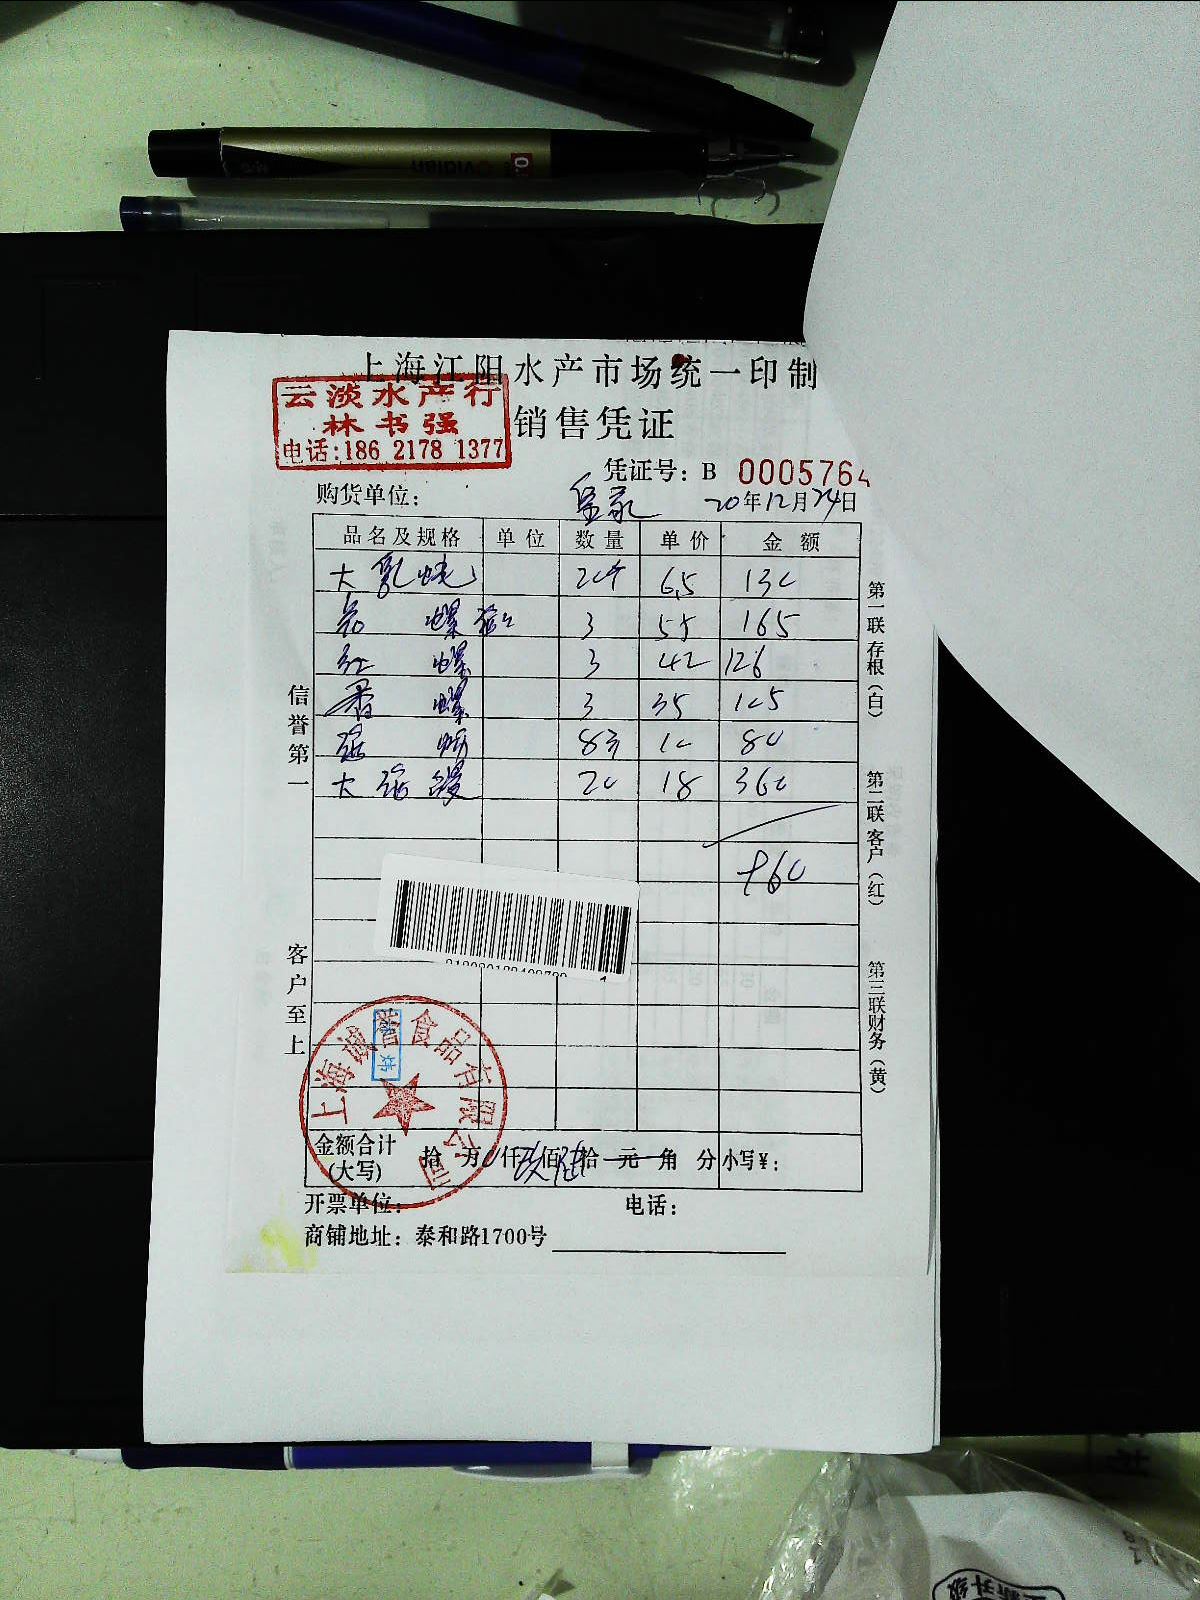 上海江阳水产市场统一印制
云淡水产行
林书强
电话:186 2178 1377
销售凭证
凭证号: B 0005764
购货单位:
20年12月24日
品名及规格 单位 数量 单价 金额
大 6.5 130
螺 3 55 165
红 螺 3 42 126
香 螺 3 35 105
8 10 80
大 20 18 360
966
信誉第一
客户至上
第一联存根(白)
第二联客户(红)
第三联财务(黄)
上海诚誉食品有限公司
金额合计
(大写)
拾 万 仟 佰 拾 元 角 分 小写¥:
开票单位: 电话:
商铺地址: 泰和路1700号